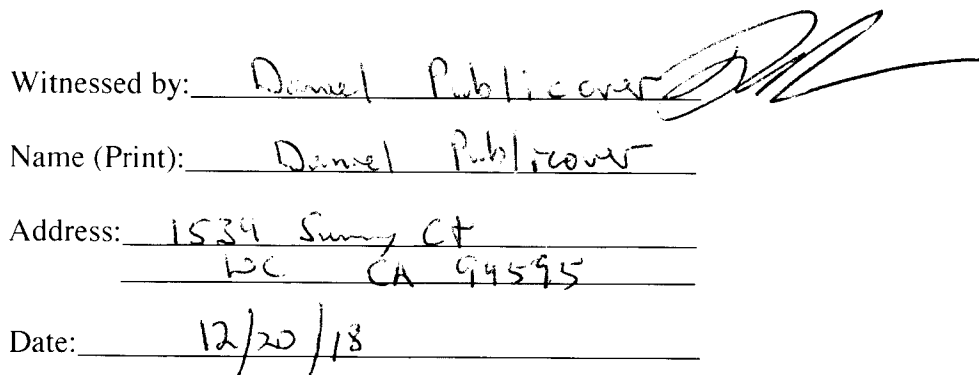 Witnessed by: Daniel Publicover
Name (Print): Daniel Publicover
Address: 1534 Sunny Ct
WC CA 94595
Date: 12/20/18